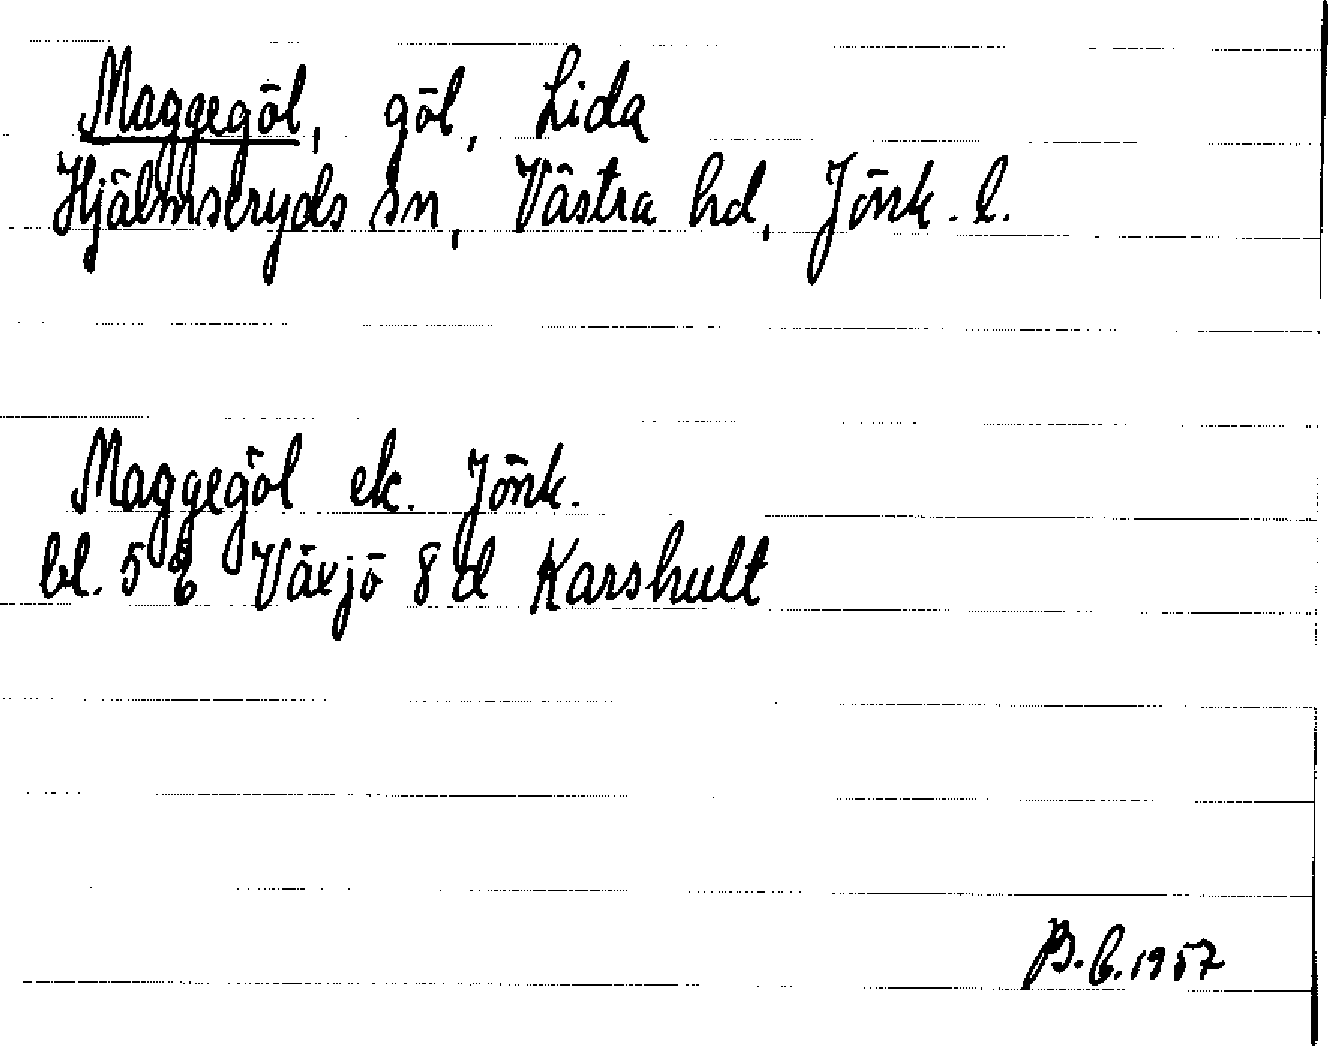 Maggegöl, göl, Lida
Hjälmseryds sn, Västra hd, Jönk. l.
Maggegöl ek. Jönk.
bl. 5 E Växjö 8 d Karshult
B. G. 1957